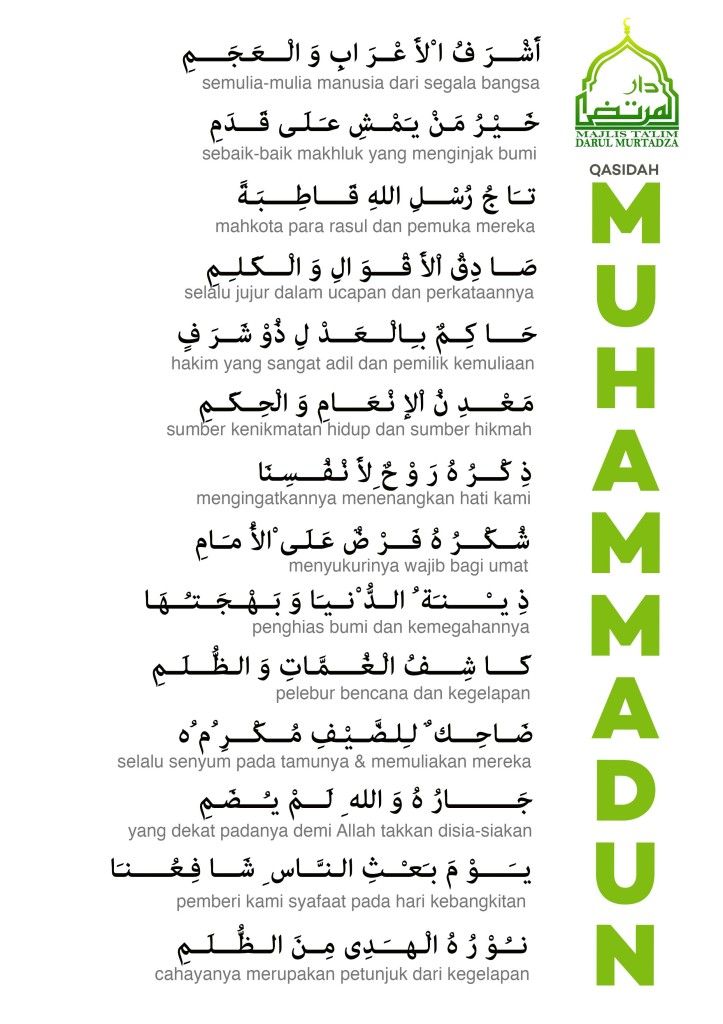 أَشْرَفُ اْلأَعْرَابِ وَ الْعَجَمِ
semulia-mulia manusia dari segala bangsa
خَيْرُ مَنْ يَمْشِ عَلَى قَدَمِ
sebaik-baik makhluk yang menginjak bumi
تَاجُ رُسْلِ اللهِ قَاطِبَةً
mahkota para rasul dan pemuka mereka
صَادِقُ اْلأَقْوَالِ وَ الْكَلِمِ
selalu jujur dalam ucapan dan perkataannya
حَاكِمٌ بِالْعَدْلِ ذُوْ شَرَفٍ
hakim yang sangat adil dan pemilik kemuliaan
مَعْدِنُ اْلإِنْعَامِ وَ الْحِكَمِ
sumber kenikmatan hidup dan sumber hikmah
ذِكْرُهُ رَوْحٌ ِلأَنْفُسِنَا
mengingatkannya menenangkan hati kami
شُكْرُهُ فَرْضٌ عَلَى ْالأُمَامِ
menyukurinya wajib bagi umat
ذِيْنَةُ الدُّنْيَا وَ بَهْجَتُهَا
penghias bumi dan kemegahannya
كَاشِفُ الْغُمَّاتِ وَ الظُّلَمِ
pelebur bencana dan kegelapan
ضَاحِكٌ لِلضَّيْفِ مُكْرِمُهُ
selalu senyum pada tamunya & memuliakan mereka
جَارُهُ وَ اللهِ لَمْ يُضَمِ
yang dekat padanya demi Allah takkan disia-siakan
يَوْمَ بَعْثِ النَّاسِ شَافِعُنَا
pemberi kami syafaat pada hari kebangkitan
نُوْرُهُ الْهَدِى مِنَ الظُّلَمِ
cahayanya merupakan petunjuk dari kegelapan
دار المرتضى
MAJLIS TA'LIM
DARUL MURTADZA
QASIDAH
MUHAMMADUN